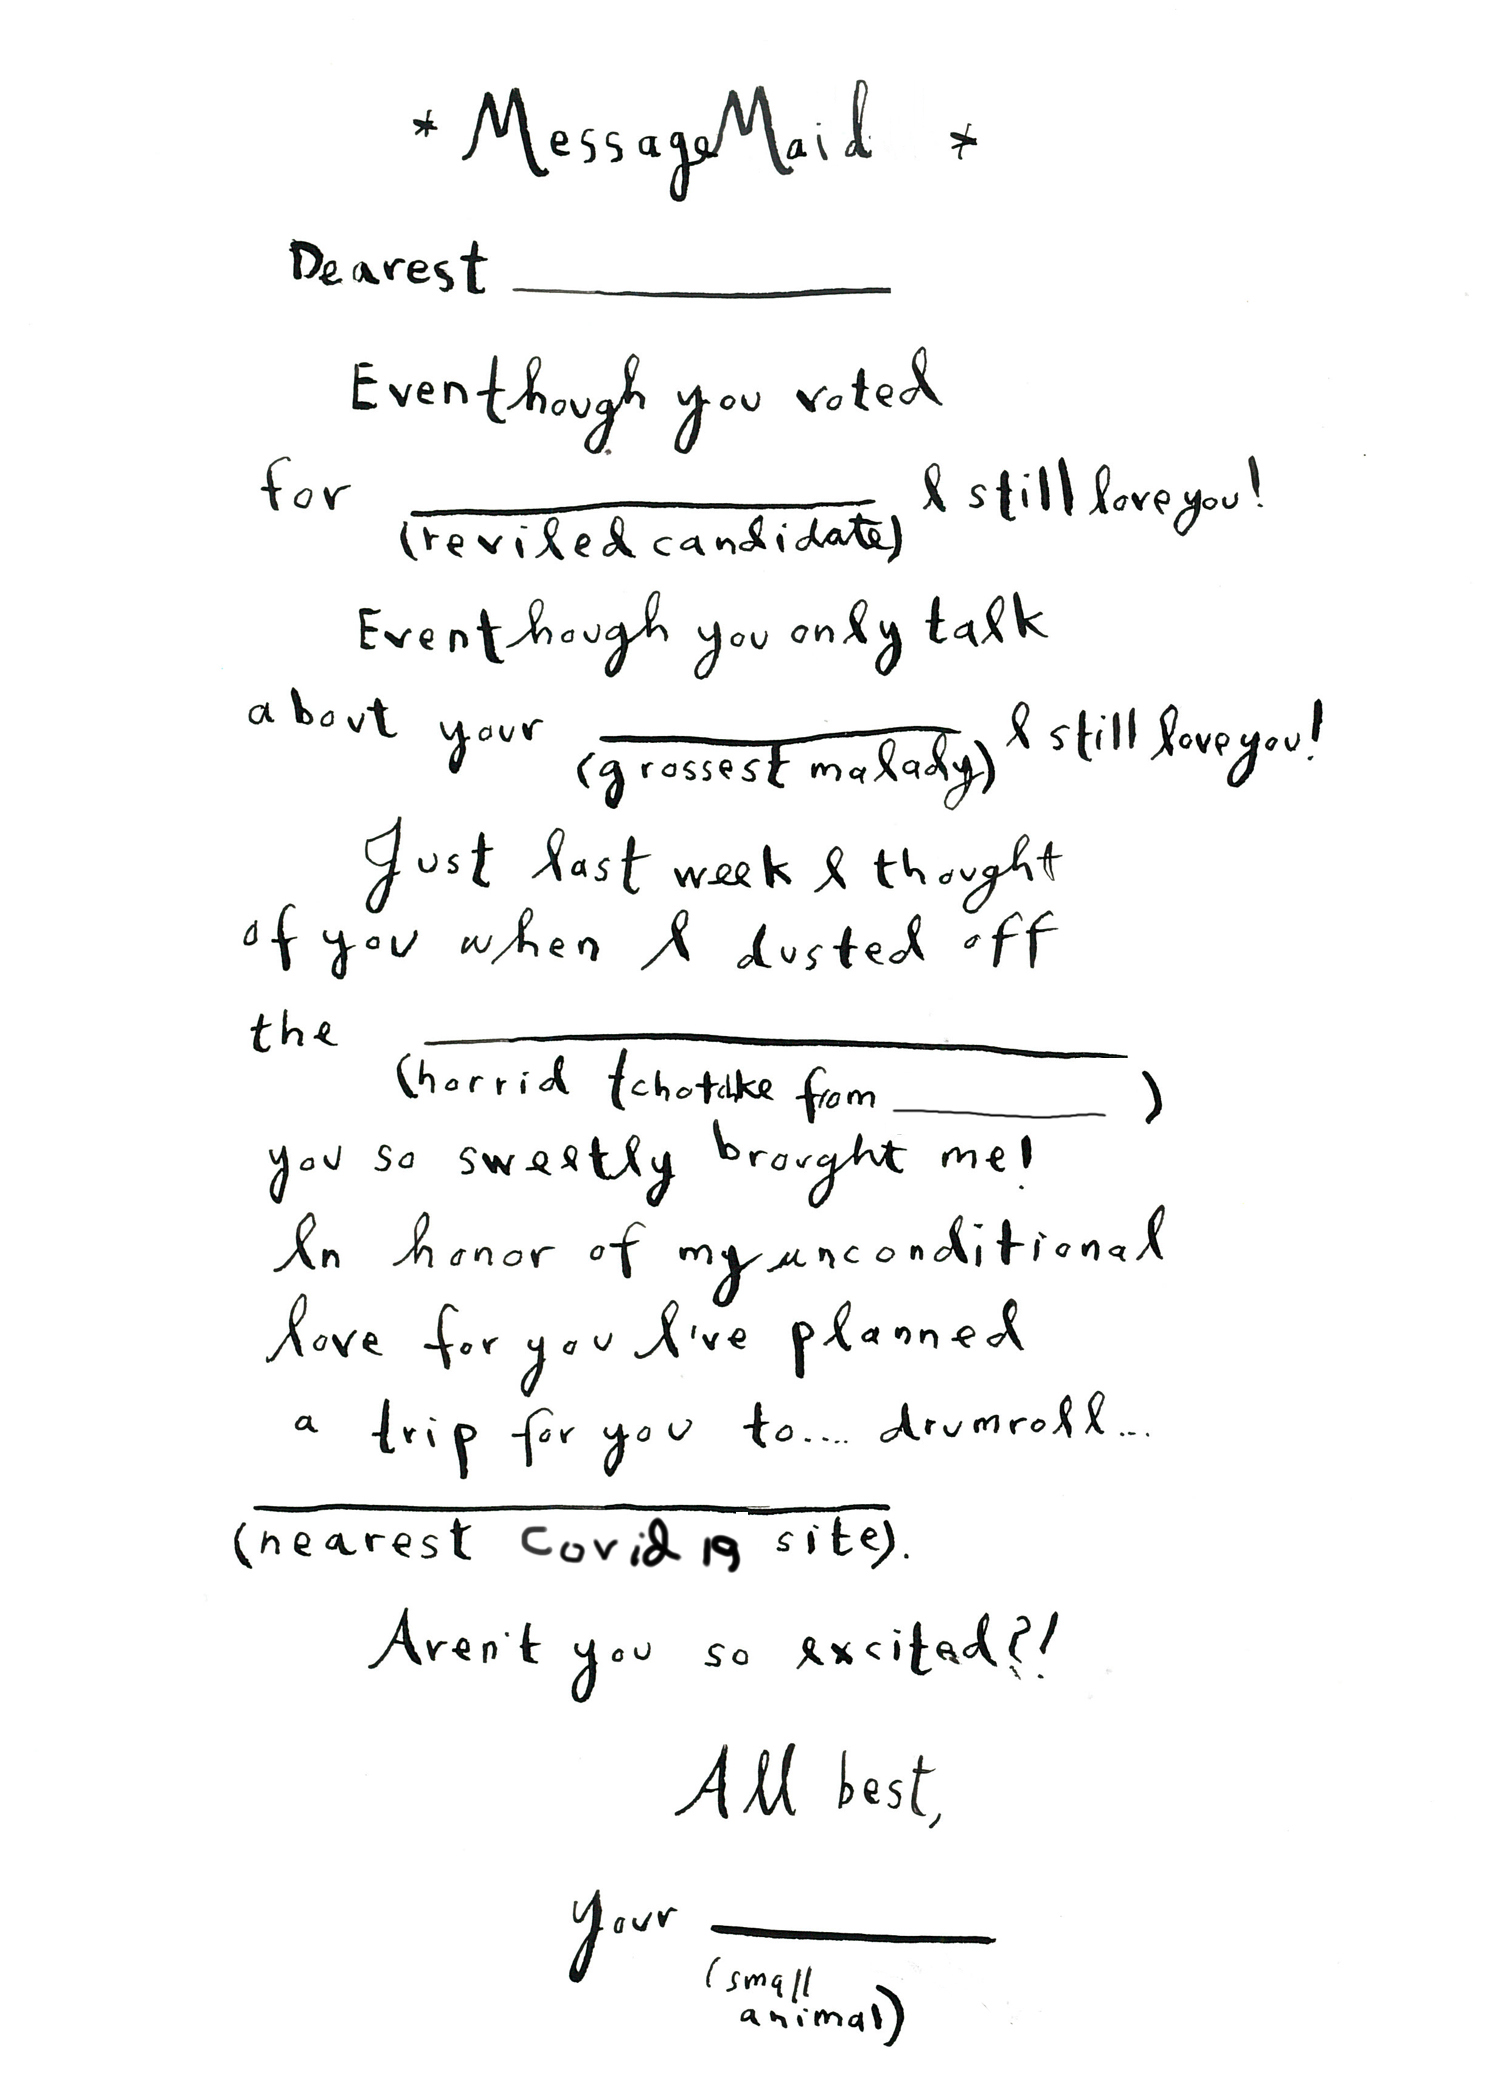 * MessageMaid *
Dearest ____________
Eventhough you voted
for ____________ I still love you!
(reviled candidate)
Eventhough you only talk
about your ____________ I still love you!
(grossest malady)
Just last week I thought
of you when I dusted off
the ____________
(horrid tchotchke from ________ )
you so sweetly brought me!
In honor of my unconditional
love for you I've planned
a trip for you to.... drumroll...
____________
(nearest Covid 19 site).
Aren't you so excited?!
All best,
your ____________
(small
animal)